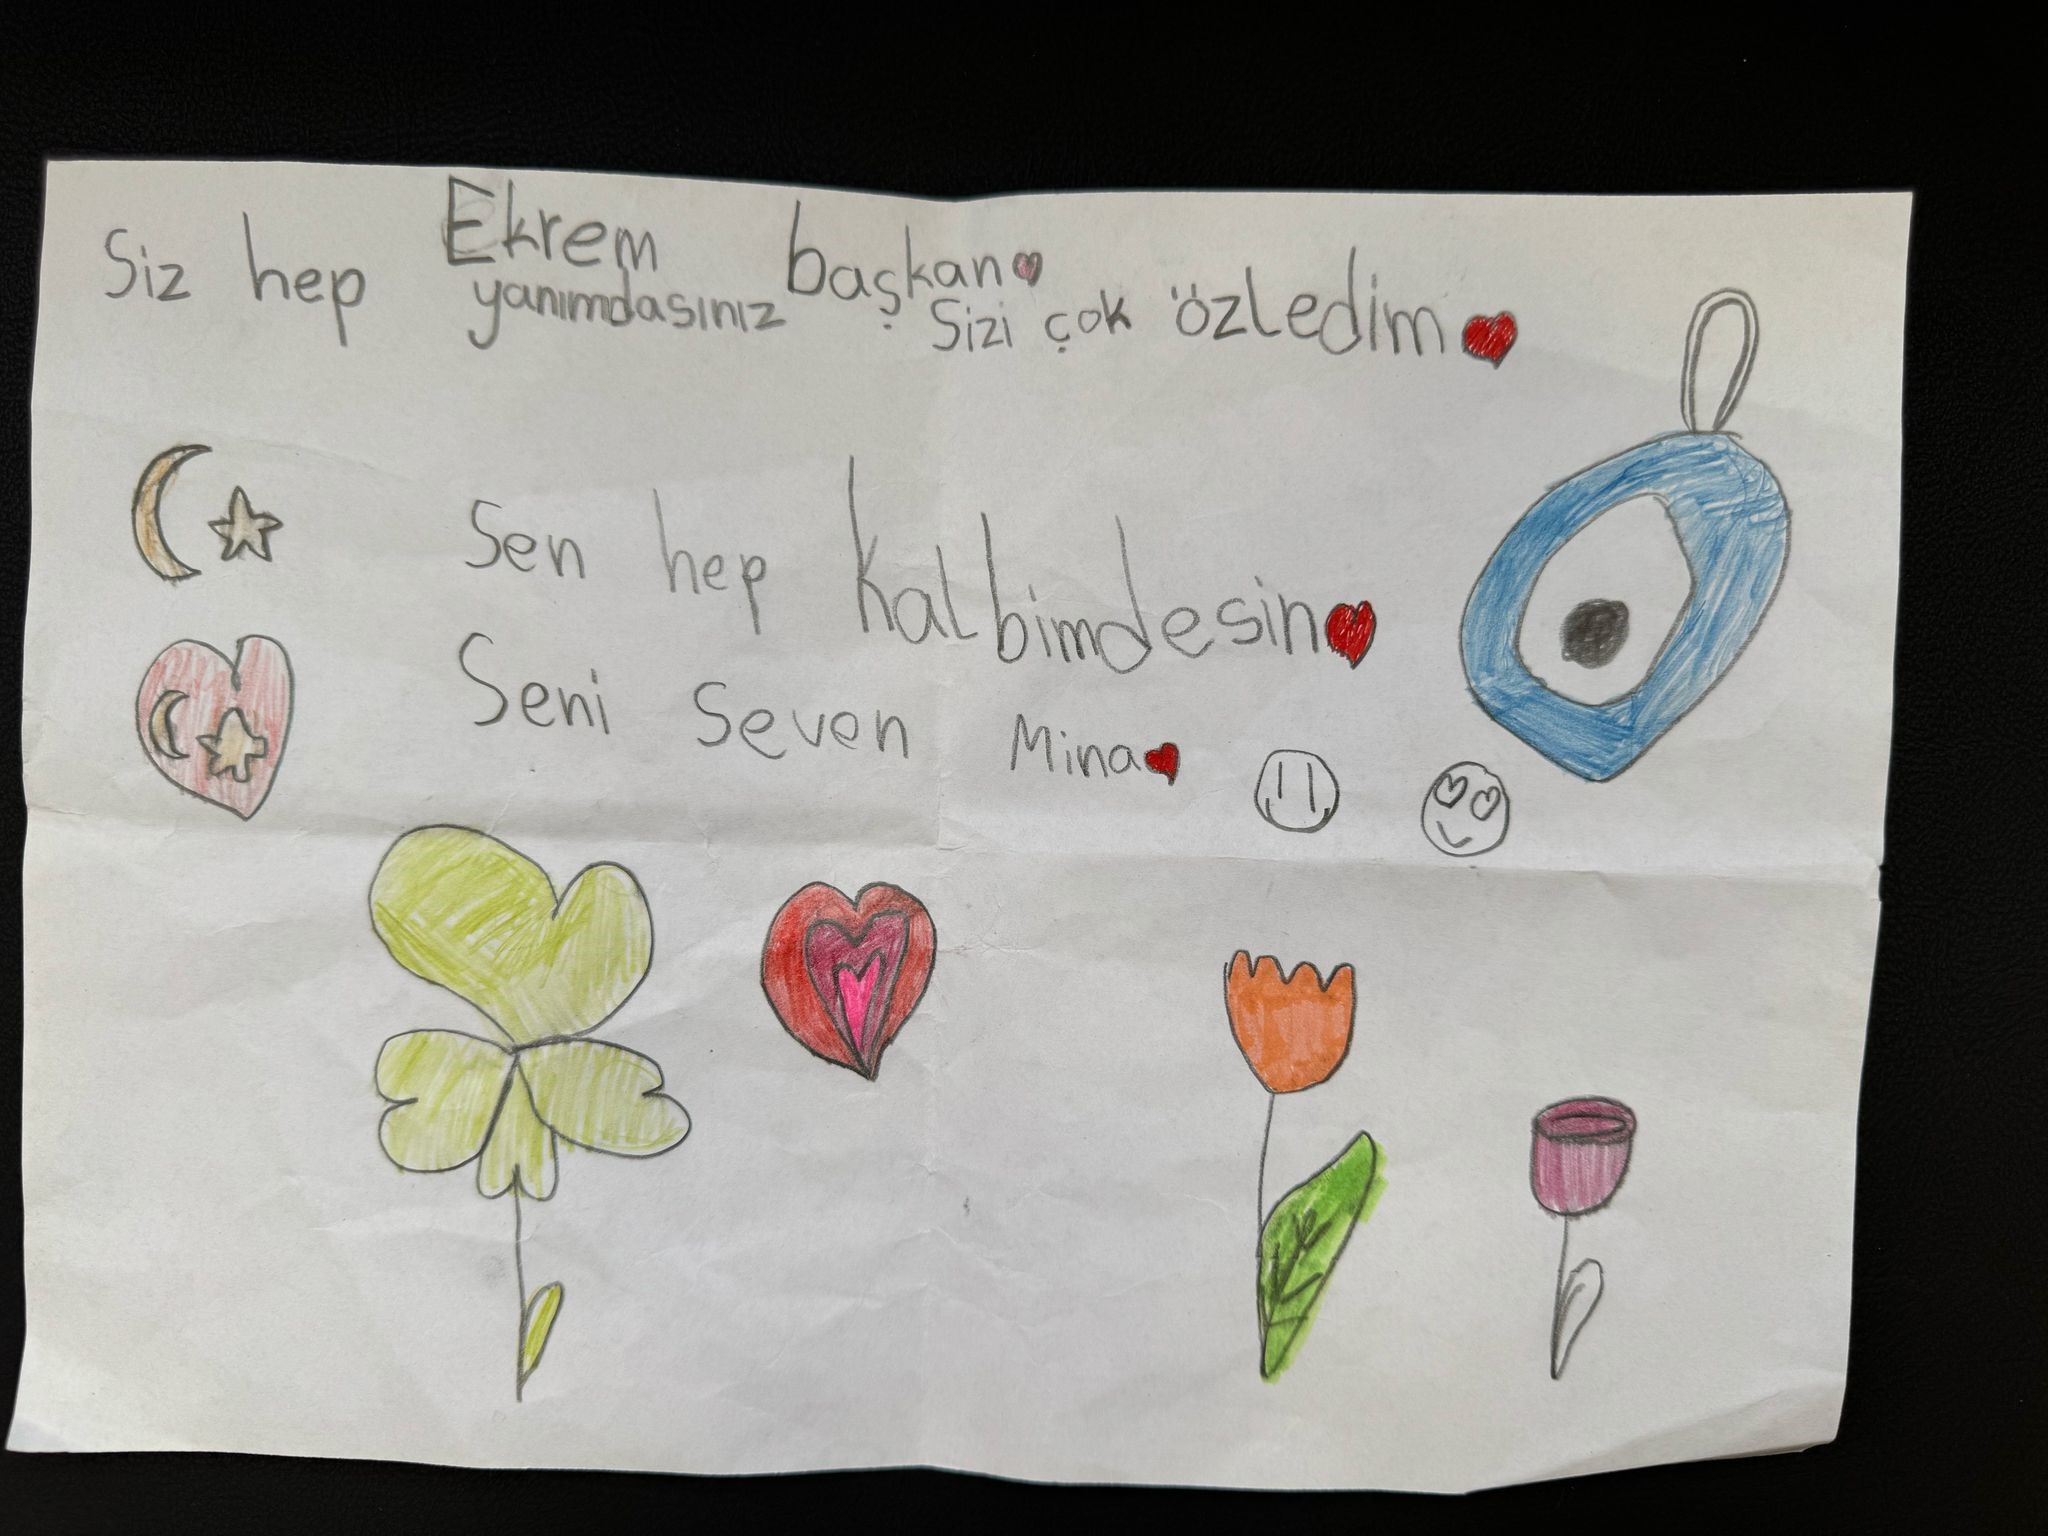 Ekrem başkan
Siz hep yanımdasınız Sizi çok özledim
Sen hep Kalbimdesin
Seni Seven Mina